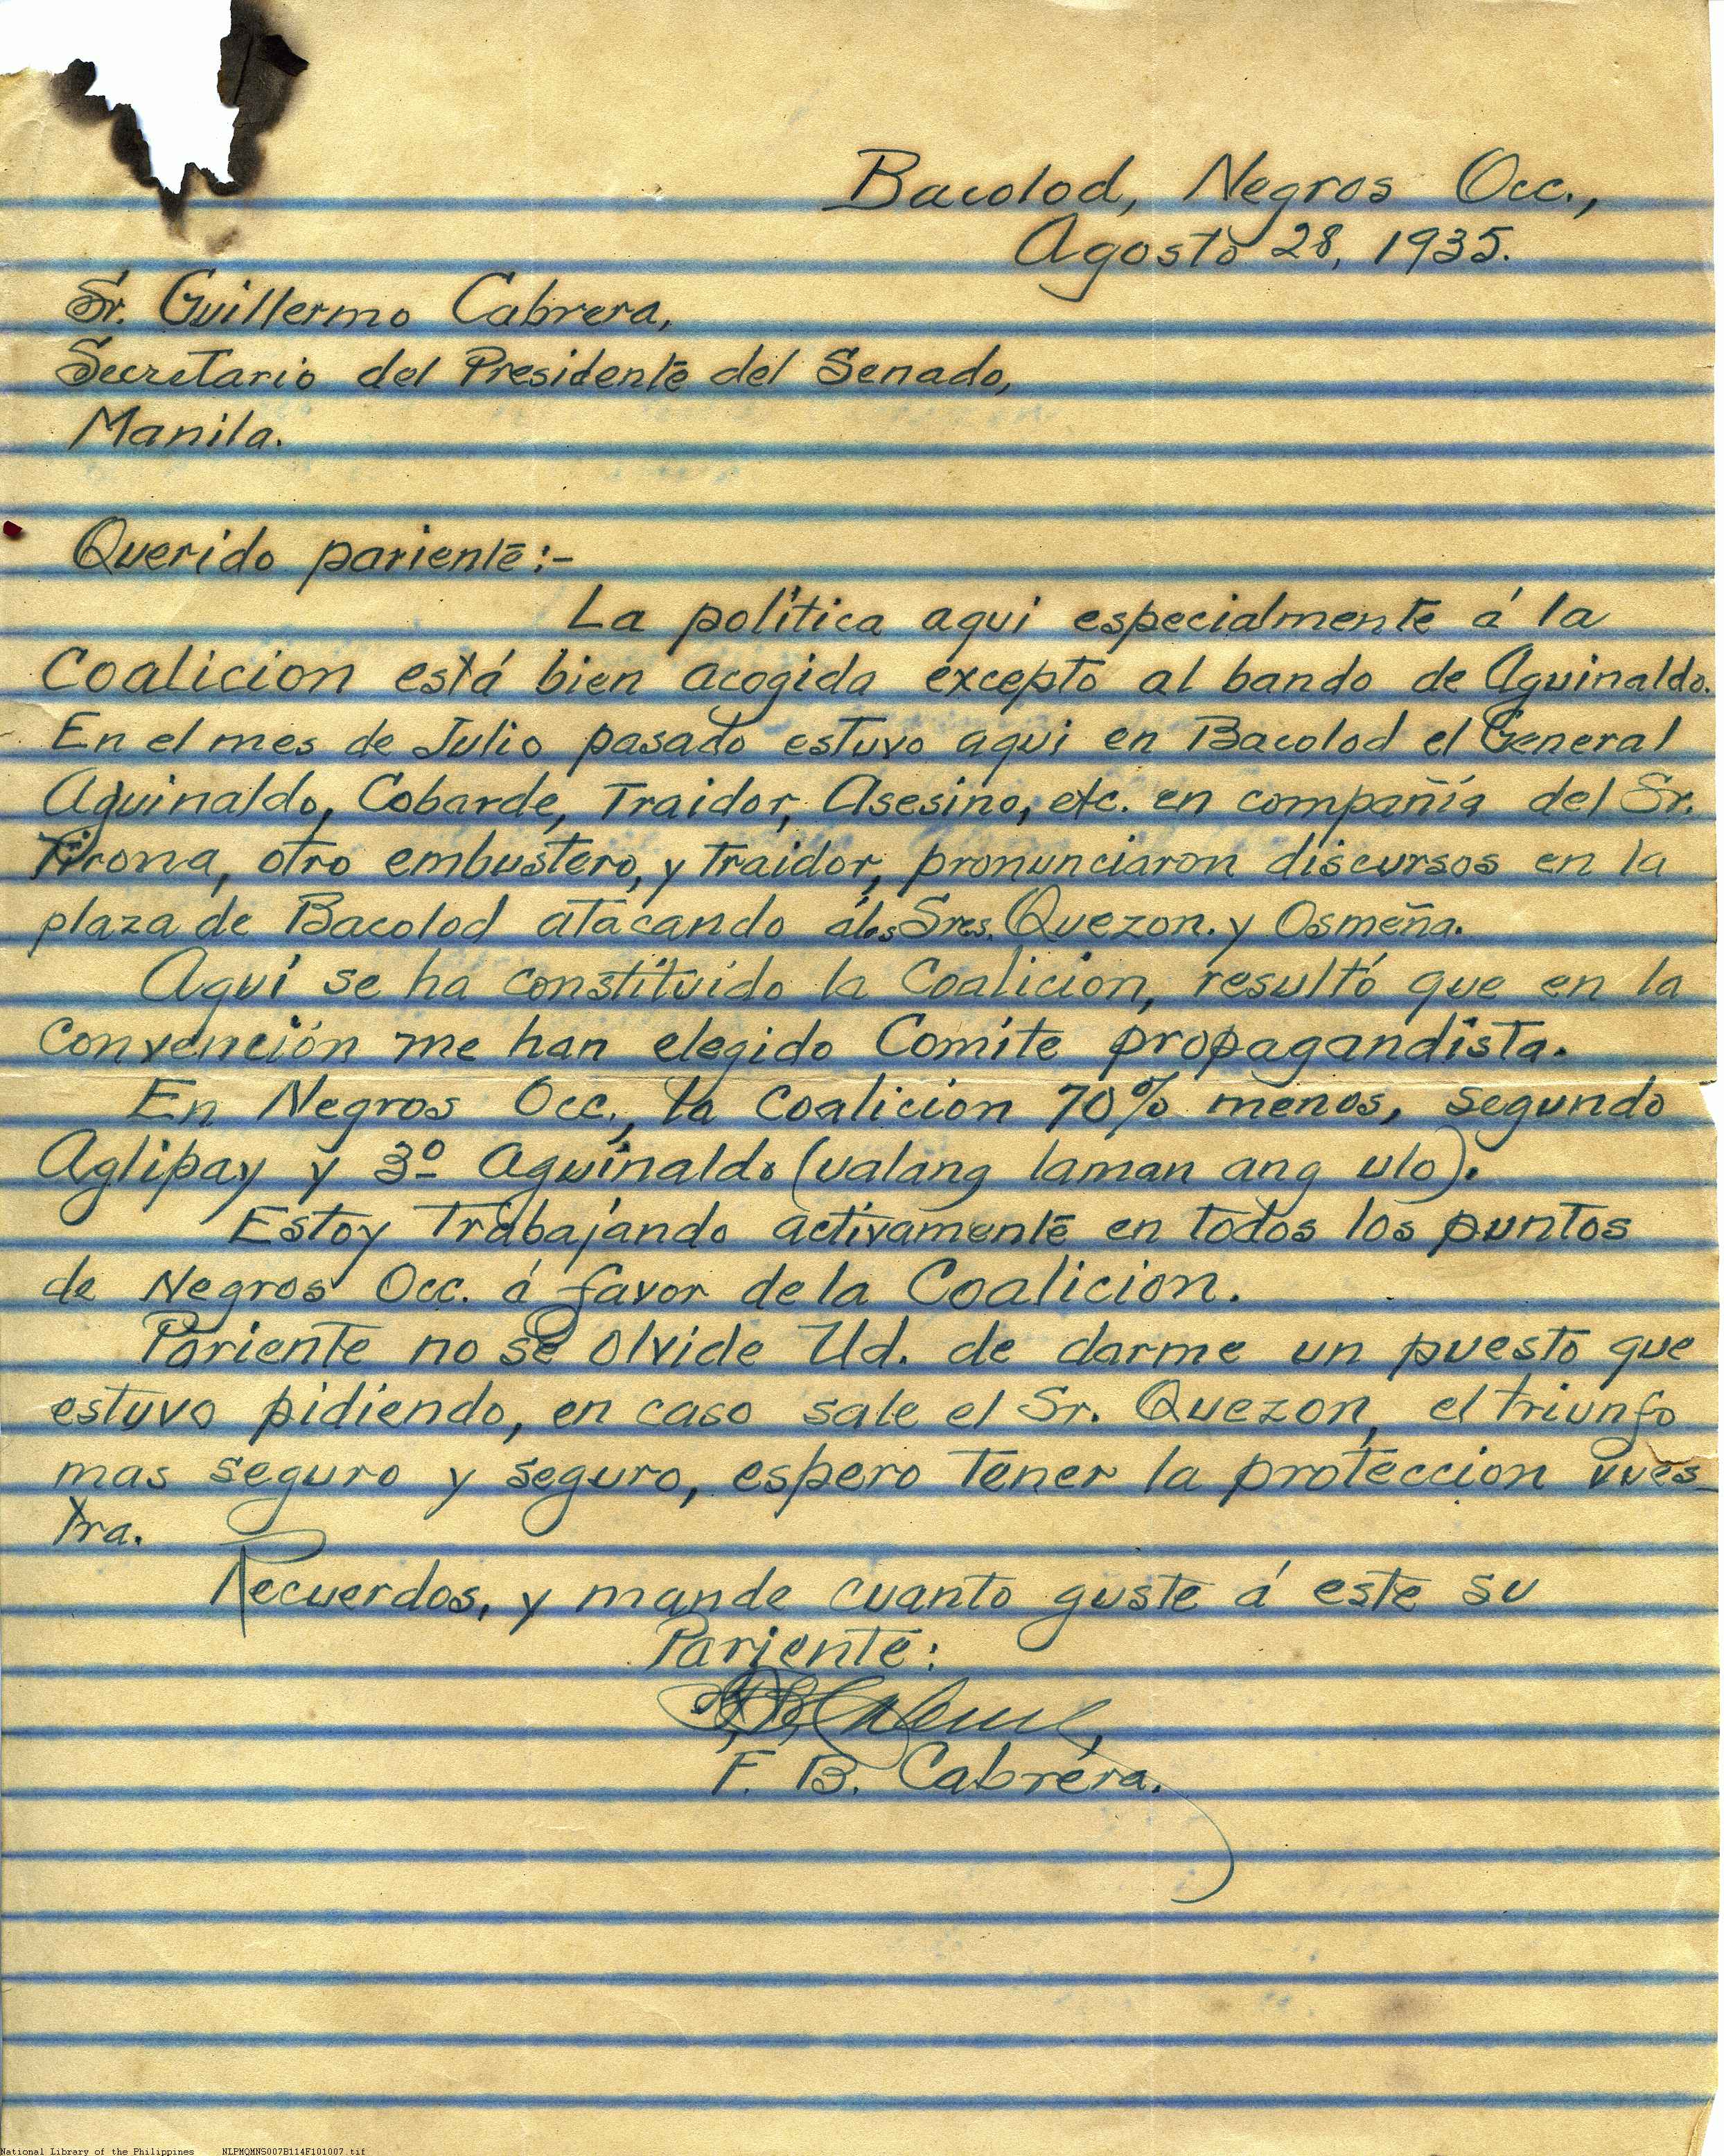 Bacolod, Negros Occ.,
Agosto 28, 1935.
Sr. Guillermo Cabrera,
Secretario del Presidente del Senado,
Manila.
Querido pariente:-
La política aqui especialmente á la
Coalicion está bien acogida excepto al bando de Aguinaldo.
En el mes de Julio pasado estuvo aqui en Bacolod el General
Aguinaldo, Cobarde, Traidor, Asesino, etc. en compañía del Sr.
Tirona, otro embustero, y traidor, pronunciaron discursos en la
plaza de Bacolod atacando á los Sres. Quezon. y Osmeña.
Aqui se ha constituido la Coalicion, resultó que en la
convención me han elegido Comite propagandista.
En Negros Occ., la Coalicion 70% menos, segundo
Aglipay y 3º Aguinaldo (ualang laman ang ulo).
Estoy trabajando activamente en todos los puntos
de Negros Occ. á favor de la Coalicion.
Pariente no se olvide Ud. de darme un puesto que
estuvo pidiendo, en caso sale el Sr. Quezon, el triunfo
mas seguro y seguro, espero tener la proteccion vues-
tra.
Recuerdos, y mande cuanto guste á este su
Pariente:
F. B. Cabrera.
National Library of the Philippines NLPMQMNS007B114F101007.tif